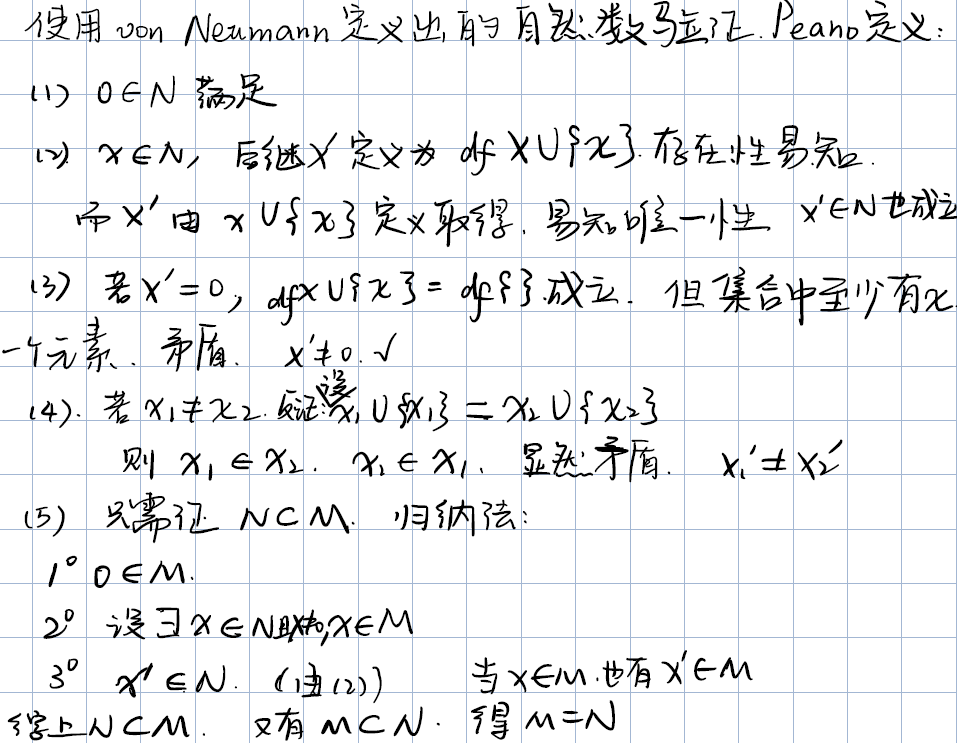 使用 von Neumann 定义出的自然数验证 Peano定义:
(1) 0∈N 满足
(2) x∈N, 后继x′定义为 df x∪{x}. 存在性易知.
而 x′ 由 x∪{x} 定义取得. 易知唯一性 x′∈N也成立
(3) 若x′=0, df x∪{x} = df{}.成立. 但集合中至少有x
一个元素. 矛盾. x′≠0.√
(4). 若x₁≠x₂. 反证: 设 x₁∪{x₁} = x₂∪{x₂}
则 x₁∈x₂. x₂∈x₁. 显然矛盾. x₁′≠x₂′
(5) 只需证 N⊂M. 归纳法:
1° 0∈M.
2° 设∃x∈N, x∈M
3° x′∈N. (由(2)) 当x∈M.也有x′∈M
综上N⊂M. 又有M⊂N. 得M=N